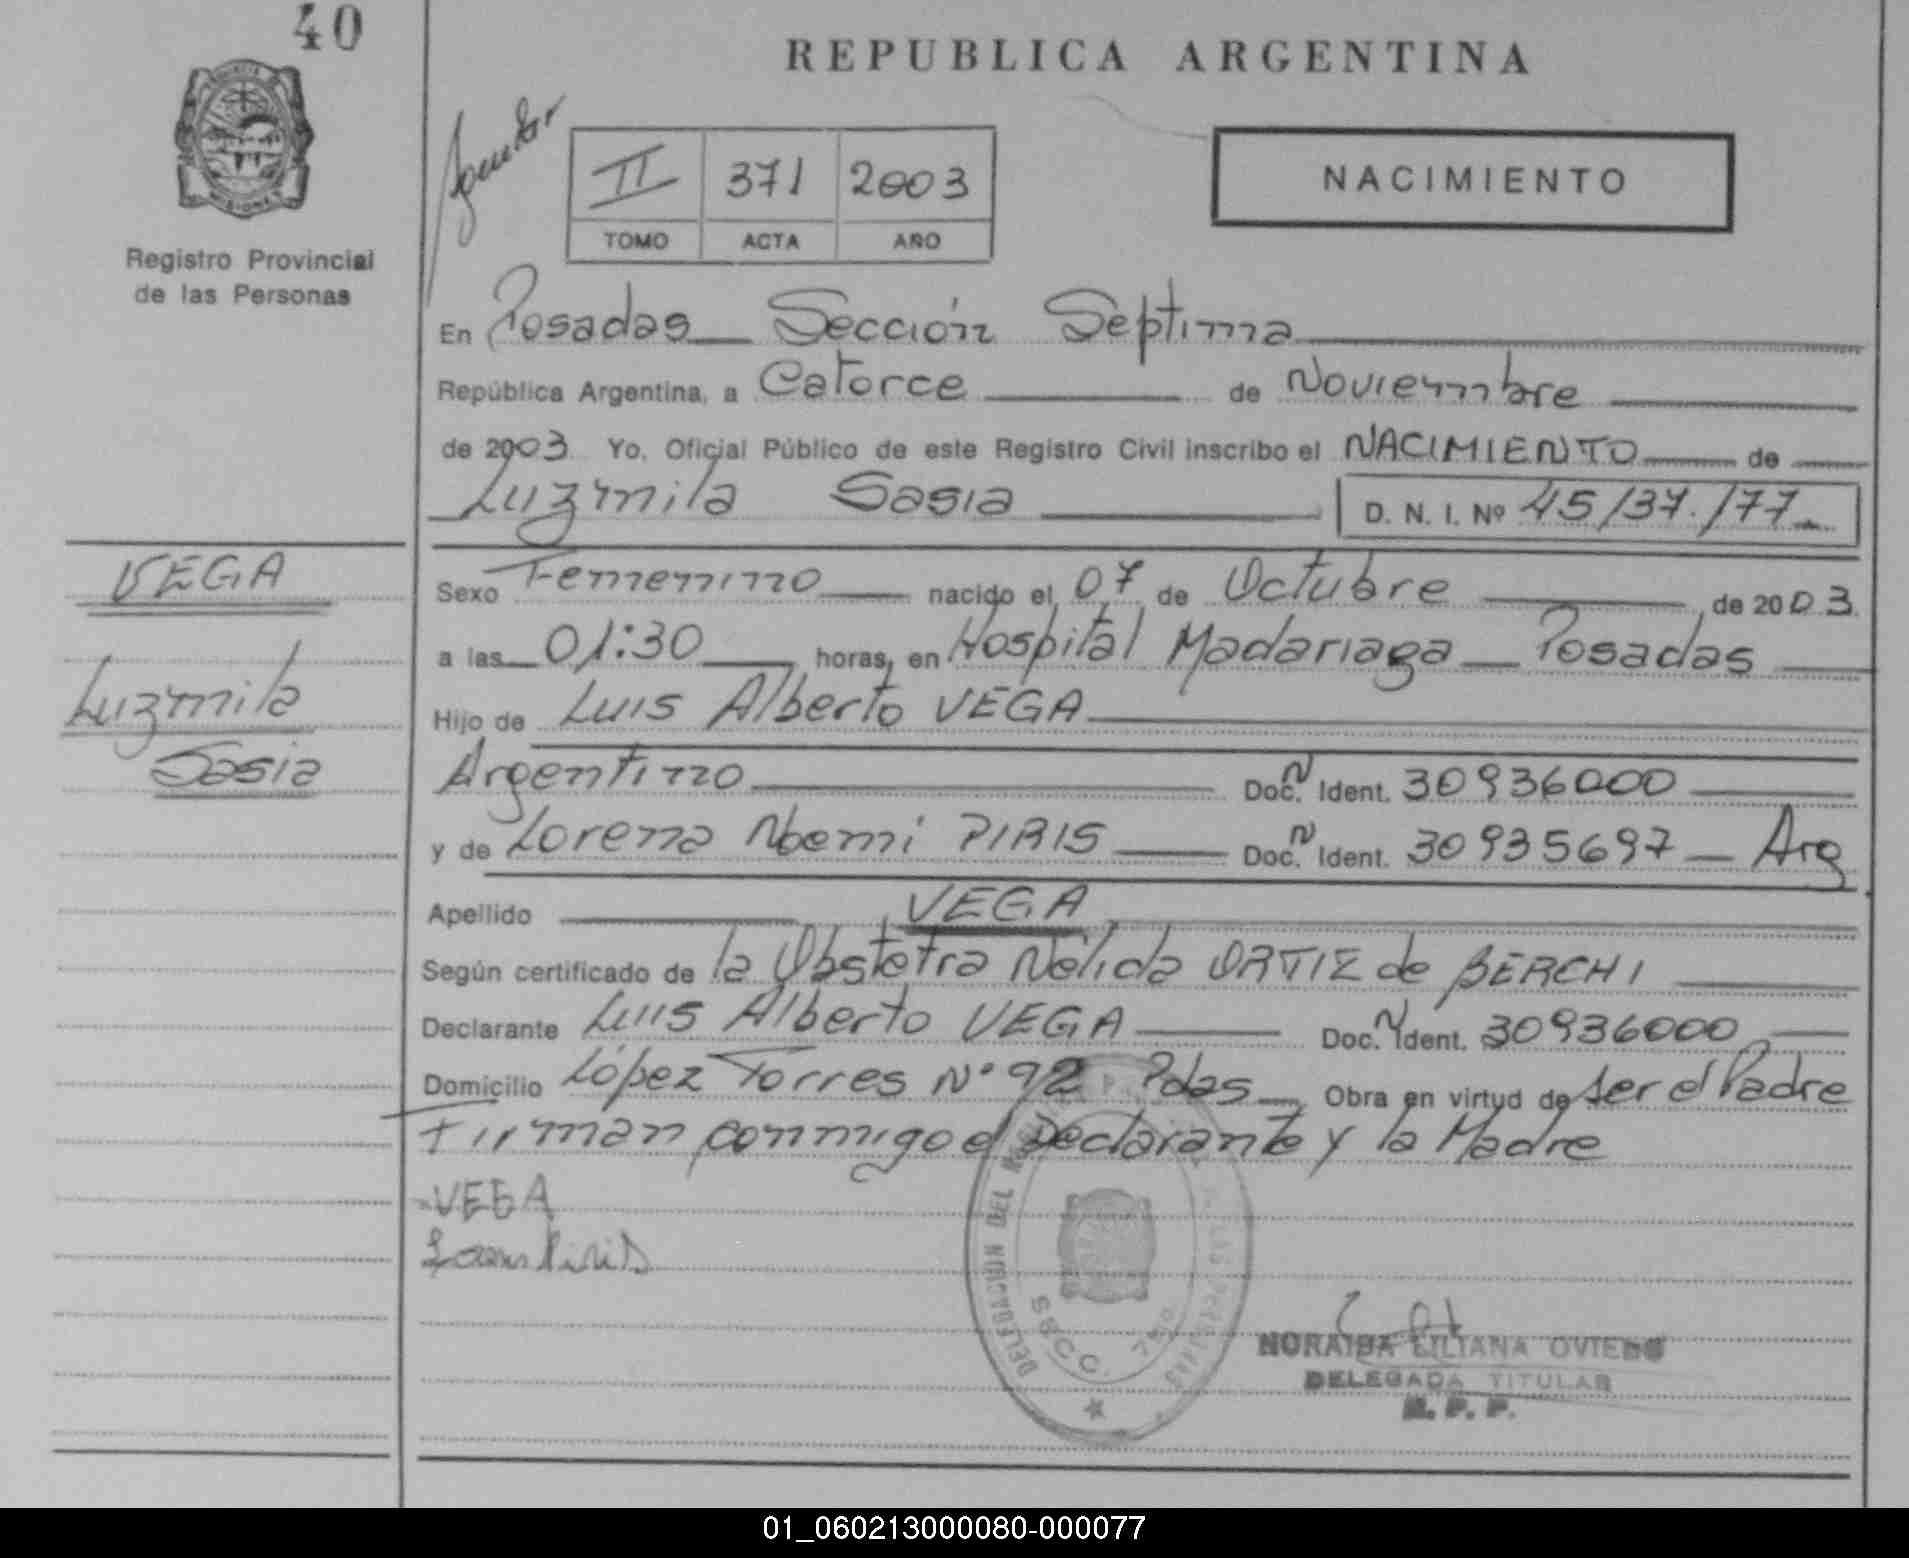 40
REPUBLICA ARGENTINA
II 371 2003
TOMO ACTA AÑO
NACIMIENTO
MISIONES
Registro Provincial
de las Personas
En Posadas Sección Septima
República Argentina, a Catorce de Noviembre
de 2003 Yo, Oficial Público de este Registro Civil inscribo el NACIMIENTO de
Luzmila Sasia D. N. I. Nº 45/137./77
VEGA
Luzmila
Sasia
Sexo Femenino nacido el 07 de Octubre de 2003
a las 01:30 horas, en Hospital Madariaga Posadas
Hijo de Luis Alberto VEGA
Argentino Doc. N Ident. 30936000
y de Lorena Noemi PIRIS Doc. N Ident. 30935697 Arg
Apellido VEGA
Según certificado de la Obstetra Nélida ORTIZ de BERCHI
Declarante Luis Alberto VEGA Doc. N Ident. 30936000
Domicilio López Torres Nº 92 Pdas Obra en virtud de ser el Padre
Firman conmigo el Declarante y la Madre
VEGA
Piris
DELEGACION DEL REGISTRO P. DE LAS PERSONAS
SECC. 7ma
NORAIBA LILIANA OVIEDO
DELEGADA TITULAR
R. P. P.
01_060213000080-000077